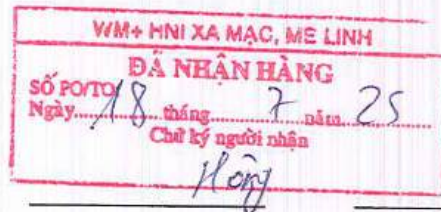 WM+ HNI XA MẠC, MÊ LINH
ĐÃ NHẬN HÀNG
SỐ PO/TO
Ngày 18 tháng 7 năm 25
Chữ ký người nhận
Hồng